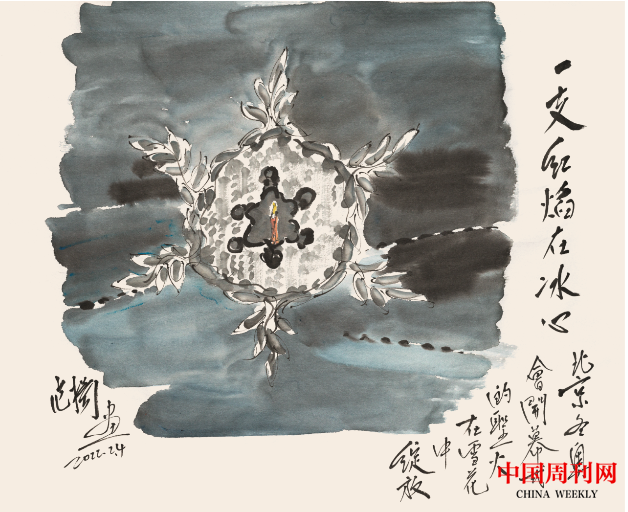 一支红焰在冰心
北京冬奥
會開幕式
的聖火
在雪花
中
綻放
范樹
畫
2022.2.4
中国周刊网
CHINA WEEKLY